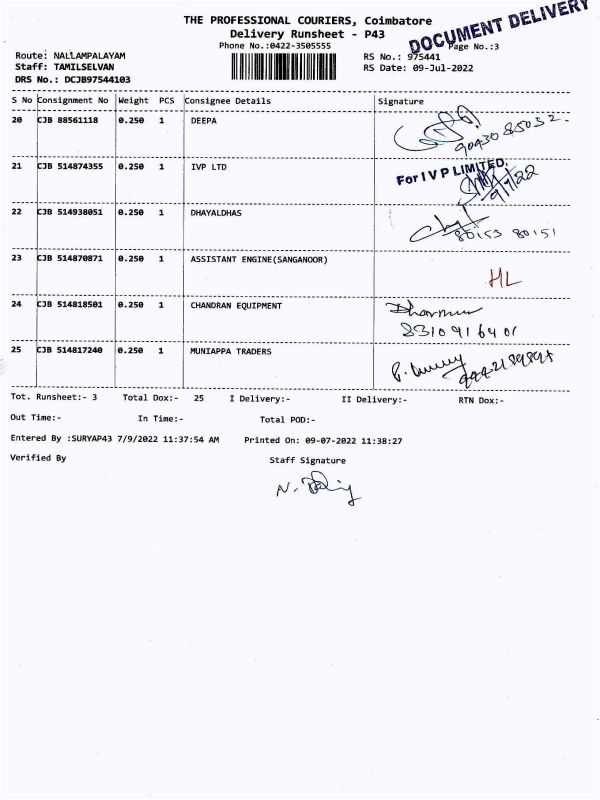 THE PROFESSIONAL COURIERS, Coimbatore
DOCUMENT DELIVERY
Delivery Runsheet - P43
Phone No.:0422-3505555
Page No.:3
Route: NALLAMPALAYAM
RS No.: 975441
Staff: TAMILSELVAN
RS Date: 09-Jul-2022
DRS No.: DCJB97544103
S No Consignment No Weight PCS Consignee Details Signature
20 CJB 88561118 0.250 1 DEEPA
9043085032.
21 CJB 514874355 0.250 1 IVP LTD
For I V P LIMITED.
9/7/22
22 CJB 514938051 0.250 1 DHAYALDHAS
80153 80151
23 CJB 514870871 0.250 1 ASSISTANT ENGINE(SANGANOOR)
HL
24 CJB 514818501 0.250 1 CHANDRAN EQUIPMENT
8310916401
25 CJB 514817240 0.250 1 MUNIAPPA TRADERS
Tot. Runsheet:- 3 Total Dox:- 25 I Delivery:- II Delivery:- RTN Dox:-
Out Time:- In Time:- Total POD:-
Entered By :SURYAP43 7/9/2022 11:37:54 AM Printed On: 09-07-2022 11:38:27
Verified By Staff Signature